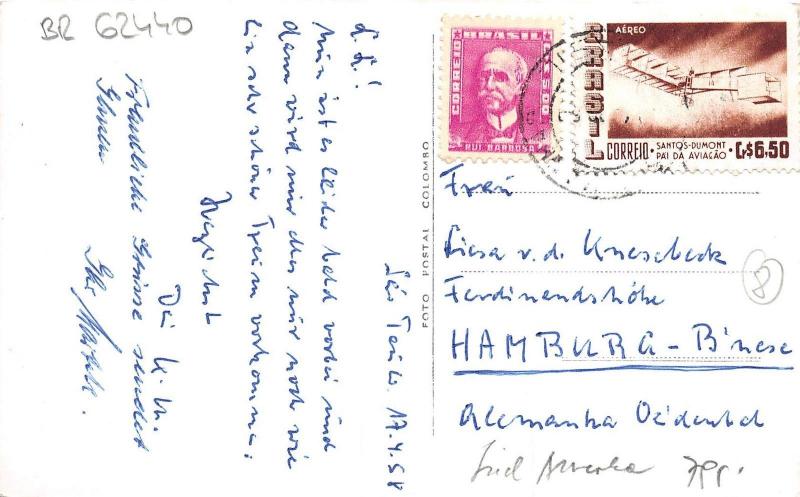 BR 62440
São Paulo 17.4.58
L. L.!
Nun ist es leider bald vorbei und
dann wird mir das nur noch wie
ein sehr schöner Traum vorkommen.
Herzlichst
Freundliche Grüsse sendet
Ihnen
Ihr
FOTO POSTAL COLOMBO
BRASIL
CORREIO
RUI BARBOSA
AÉREO
BRASIL
CORREIO
SANTOS-DUMONT
PAI DA AVIAÇÃO
Cr$6,50
Frau
Liesa v. d. Knesebeck
Ferdinandshöhe
HAMBURG - B'nese
Alemanha Occidental
8